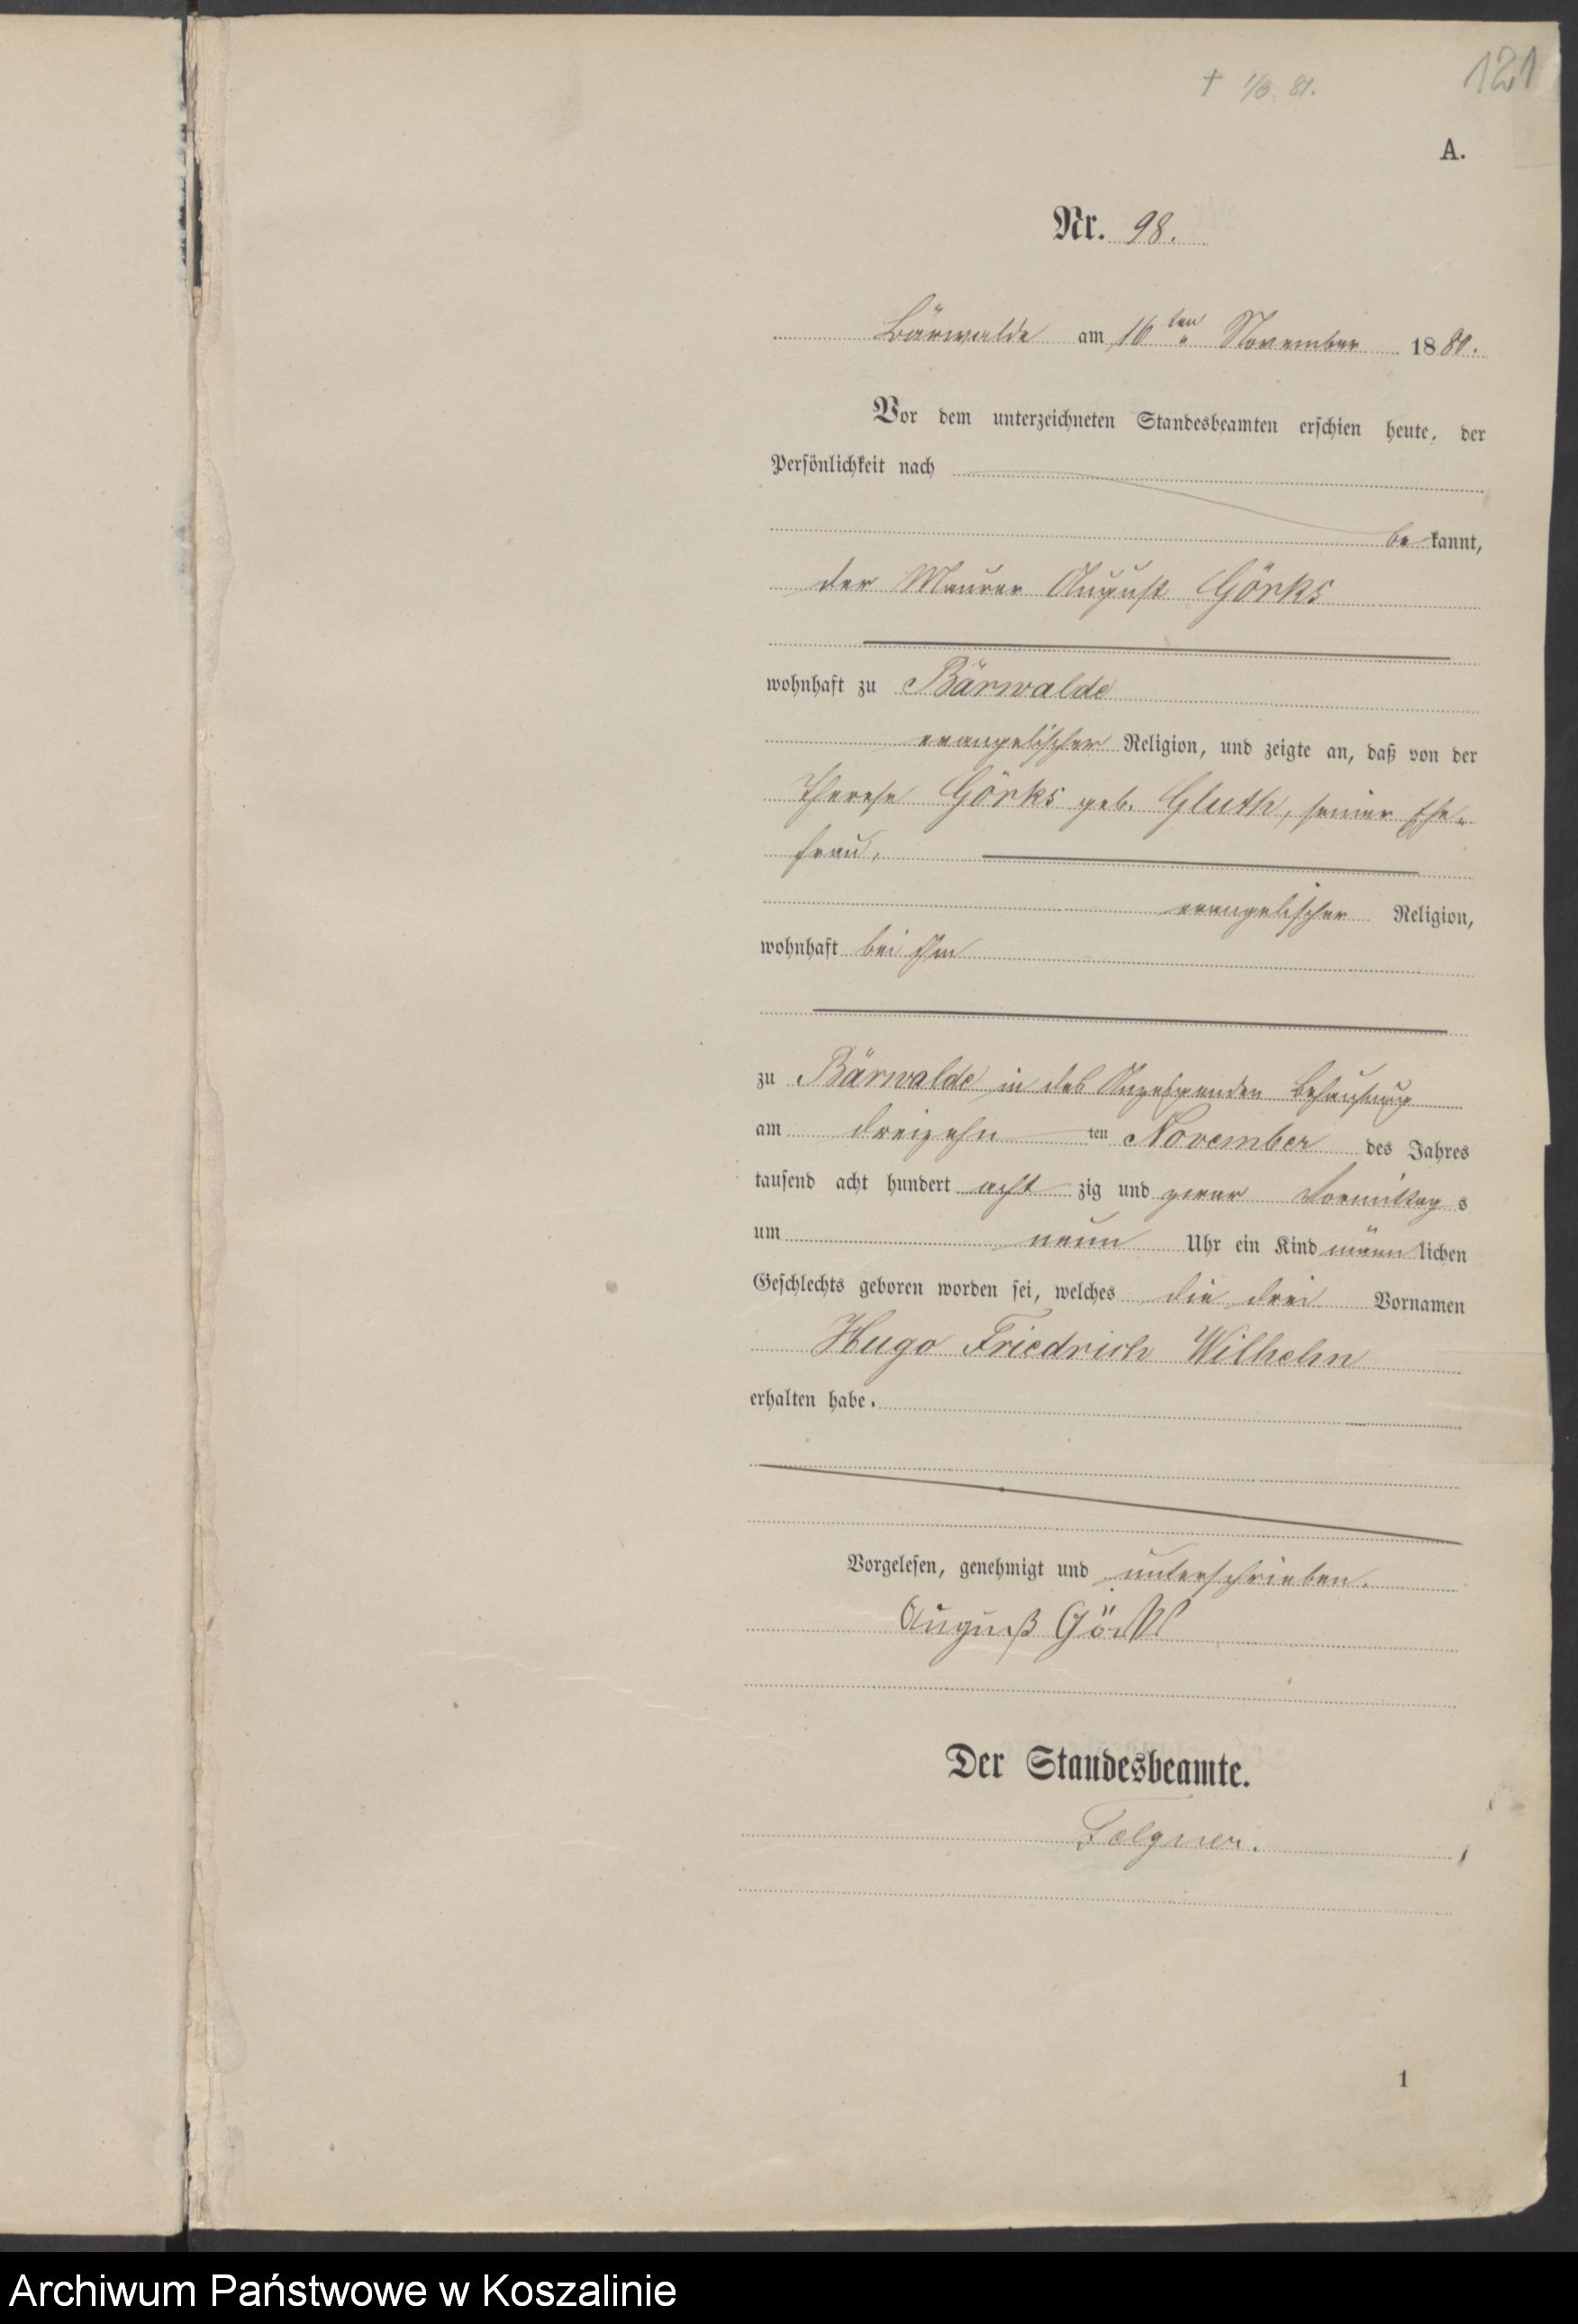 121
† 1/3. 81.
A.
Nr. 98.
Bärwalde am 16ten November 1880.
Vor dem unterzeichneten Standesbeamten erschien heute, der
Persönlichkeit nach
bekannt,
der Maurer August Görks
wohnhaft zu Bärwalde
evangelischer Religion, und zeigte an, daß von der
Therese Görks geb. Gluth, seiner Ehe-
frau,
evangelischer Religion,
wohnhaft bei ihm
zu Bärwalde in des Anzeigenden Behausung
am dreizehnten November des Jahres
tausend acht hundert achtzig und zwar Vormittags
um neun Uhr ein Kind männlichen
Geschlechts geboren worden sei, welches die drei Vornamen
Hugo Friedrich Wilhelm
erhalten habe.
Vorgelesen, genehmigt und unterschrieben.
August
Der Standesbeamte.
Felgner.
1
Archiwum Państwowe w Koszalinie